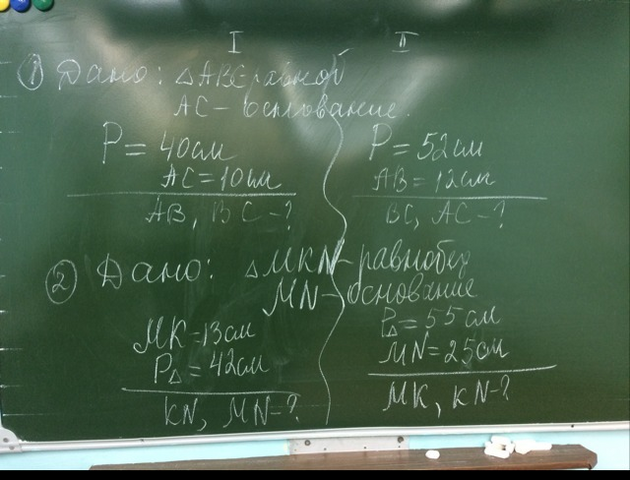 I II
① Дано: △ABC равноб
AC - основание.
P = 40см
AC = 10см
AB, BC - ?
P = 52см
AB = 12см
BC, AC - ?
② Дано: △MKN - равнобед
MN - основание
MK - 13см
P△ = 42см
KN, MN - ?
P△ = 55см
MN = 25см
MK, KN - ?